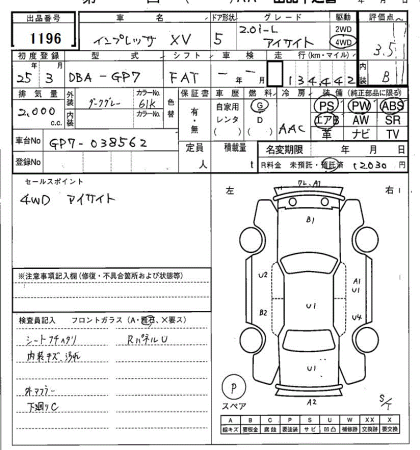 出品番号 車名 ドア形状 グレード 駆動 評価点
1196 インプレッサ XV 5 2.0i-L アイサイト 2WD 4WD 3.5
初度登録 型式 シフト 車検 走行(km・マイル) 内装
25年3月 DBA-GP7 FAT 134,442 B
排気量 外装 カラーNo. 色替 保証書 車歴 燃料 冷房 装備(純正部品に限る)
2,000 c.c. ダークグレー 61K 有・無 自家用 G AAC PS PW ABS
レンタ D エアB AW SR
内装 カラーNo. 革 ナビ TV
車台No GP7-038562 定員 積載量 名変期限 年 月 日
登録No 人 t R料金 未預託・預託済 12030 円
セールスポイント 左 右
4WD アイサイト
B1
U2 A1
U1 U1
B2 U4
U1
※注意事項記入欄(修復・不具合箇所および状態等)
検査員記入 フロントガラス(A・飛石、X要ス)
シートコゲアリ RパネルU
内装キズ、汚れ
下廻りC
P
スペア A2 S/T
A B C P S U W X XX
線キズ 要板金 腐蝕 要塗装 サビ 凹凸 補修跡 交換跡 要交換